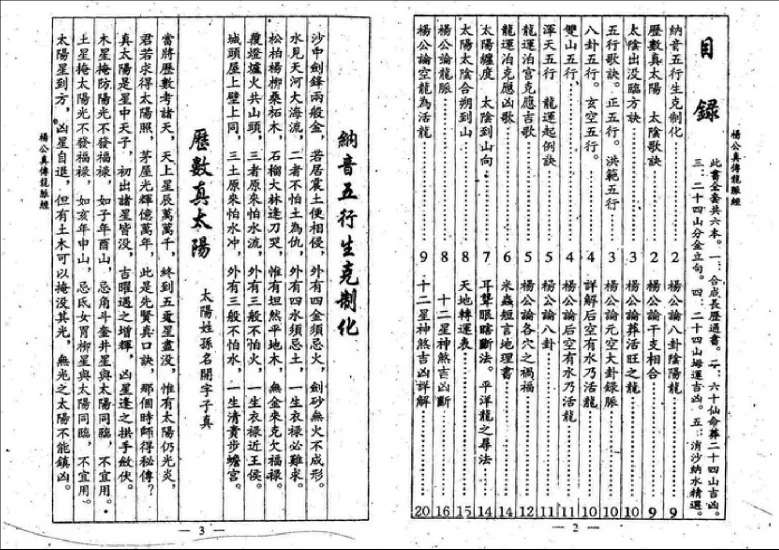 楊公真傳龍脈經
目錄
此書全套共六本。一：合成長歷通書。二：六十仙命葬二十四山吉凶。
三：二十四山分金立向。四：二十四山坳運吉凶。五：消沙納水精選。
納音五行生克制化 2
歷數真太陽 2
歷數真太陽　太陰歌訣 2
太陰出没臨方訣 3
五行歌訣。正五行。洪範五行 3
八卦五行。玄空五行。 4
雙山五行、 4
渾天五行　龍運起例訣 5
龍運泊宮克應吉歌 5
龍運泊克應凶歌 6
太陽纏度　太陰到山向 7
太陽太陰合朔到山 8
楊公論龍脈 8
楊公論空龍為活龍 9
楊公論八卦陰陽龍 9
楊公論干支相合 9
楊公論葬活旺之龍 10
楊公論元空大卦錄脈 10
詳解后空有水乃活龍 10
楊公論后空有水乃活龍 11
楊公論八卦 11
楊公論各穴之禍福 12
米蟲短言地理書 14
耳聾眼瞎斷法。平洋龍之尋法 14
天地轉運表 15
十二星神煞吉凶斷 16
十二星神煞吉凶詳解 20
— 2 —
納音五行生克制化
沙中劍鋒兩般金，若居震土便相侵，外有四金須忌火，劍砂無火不成形。
水見天河大海流，二者不怕土為仇，外有四水須忌土，一生衣祿必難求。
松柏楊柳桑柘木，石榴大林逢刀哭，惟有坦然平地木，無金來克欠福祿。
覆燈爐火共山頭，三者原來怕水流，外有三般不怕火，一生衣祿近王侯。
城頭屋上壁上同，三土原來怕水冲，外有三般不怕水，一生清貴步蟾宮。
歷數真太陽　太陽姓孫名開字子真
當將歷數考諸天，天上星辰萬萬千，終到五更星盡没，惟有太陽仍光炎，
君若求得太陽照，茅屋光輝億萬年，此是先賢真口訣，那個時師得秘傳？
真太陽是星中天子，初出諸星皆没，吉曜遇之增輝，凶星逢之拱手斂伏。
木星掩防陽光不發福祿，如子年酉山，忌角斗奎井星與太陽同臨，不宜用。
土星掩太陽光不發福祿，如亥年申山，忌氐女胃柳星與太陽同臨，不宜用。
太陽星到方，凶星自退，但有土木可以掩没其光，無光之太陽不能鎮凶。
楊公真傳龍脈經
— 3 —